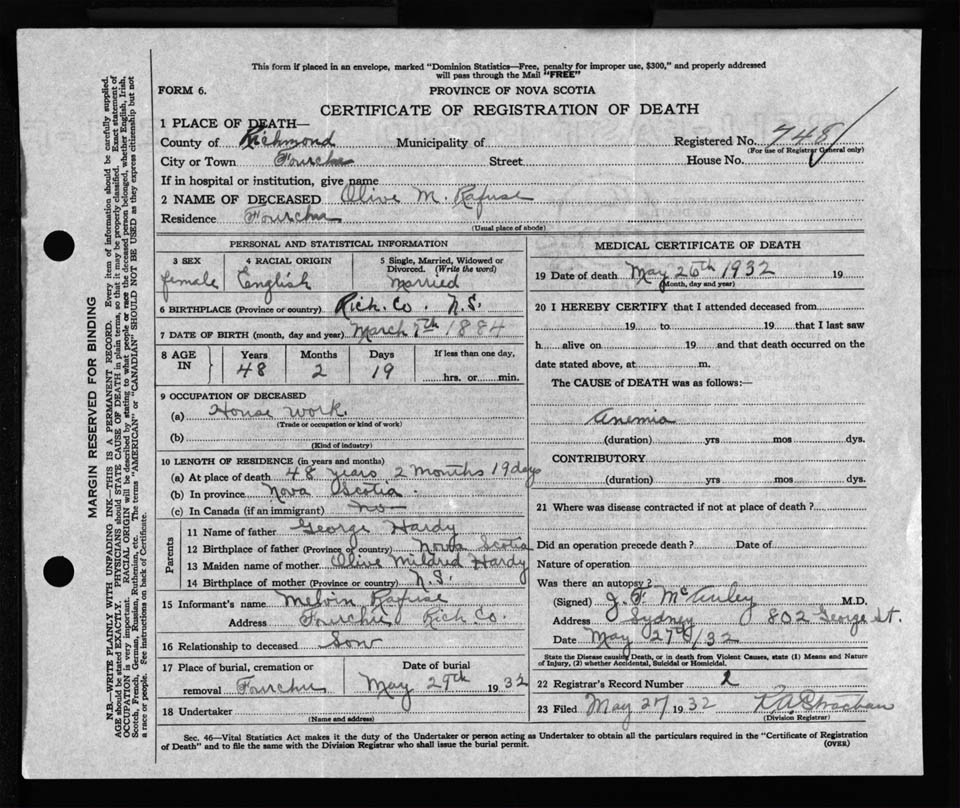 This form if placed in an envelope, marked "Dominion Statistics—Free, penalty for improper use, $300," and properly addressed
will pass through the Mail "FREE"
FORM 6.
PROVINCE OF NOVA SCOTIA
CERTIFICATE OF REGISTRATION OF DEATH
1 PLACE OF DEATH—
County of Richmond Municipality of Registered No. 748
(For use of Registrar General only)
City or Town Fourchu Street House No.
If in hospital or institution, give name
2 NAME OF DECEASED Olive M. Rafuse
Residence Fourchu
(Usual place of abode)
PERSONAL AND STATISTICAL INFORMATION
3 SEX 4 RACIAL ORIGIN 5 Single, Married, Widowed or
Divorced. (Write the word)
female English married
6 BIRTHPLACE (Province or country) Rich. Co. N.S.
7 DATE OF BIRTH (month, day and year) March 7th 1884
8 AGE IN Years Months Days If less than one day,
48 2 19 hrs. or min.
9 OCCUPATION OF DECEASED
(a) House work.
(Trade or occupation or kind of work)
(b)
(Kind of industry)
10 LENGTH OF RESIDENCE (in years and months)
(a) At place of death 48 years 2 months 19 days
(b) In province Nova Scotia.
(c) In Canada (if an immigrant) no
Parents
11 Name of father George Hardy
12 Birthplace of father (Province or country) Nova Scotia
13 Maiden name of mother Olive Mildred Hardy
14 Birthplace of mother (Province or country) N.S.
15 Informant's name Melvin Rafuse
Address Fourchu Rich Co.
16 Relationship to deceased Son
17 Place of burial, cremation or Date of burial
removal Fourchu May 29th 1932
18 Undertaker
(Name and address)
MEDICAL CERTIFICATE OF DEATH
19 Date of death May 26th 1932 19
(Month, day and year)
20 I HEREBY CERTIFY that I attended deceased from
19 to 19 that I last saw
h alive on 19 and that death occurred on the
date stated above, at m.
The CAUSE of DEATH was as follows:—
Anemia
(duration) yrs mos dys.
CONTRIBUTORY
(duration) yrs mos dys.
21 Where was disease contracted if not at place of death?
Did an operation precede death? Date of
Nature of operation
Was there an autopsy?
(Signed) J. F. McAuley M.D.
Address Sydney 802 George St.
Date May 27th/32
State the Disease causing Death, or in death from Violent Causes, state (1) Means and Nature
of Injury, (2) whether Accidental, Suicidal or Homicidal.
22 Registrar's Record Number 2
23 Filed May 27 1932 R A Strachan
(Division Registrar)
Sec. 46—Vital Statistics Act makes it the duty of the Undertaker or person acting as Undertaker to obtain all the particulars required in the "Certificate of Registration
of Death" and to file the same with the Division Registrar who shall issue the burial permit.
(OVER)
MARGIN RESERVED FOR BINDING
N.B.—WRITE PLAINLY WITH UNFADING INK—THIS IS A PERMANENT RECORD. Every item of information should be carefully supplied.
AGE should be stated EXACTLY. PHYSICIANS should STATE CAUSE OF DEATH in plain terms, so that it may be properly classified. Exact statement of
OCCUPATION is very important. RACIAL ORIGIN will be described by stating to what people or race the deceased person belonged, whether English, Irish,
Scotch, French, German, Russian, Ruthenian, etc. The terms "AMERICAN" or "CANADIAN" SHOULD NOT BE USED as they express citizenship but not
a race or people. See instructions on back of Certificate.